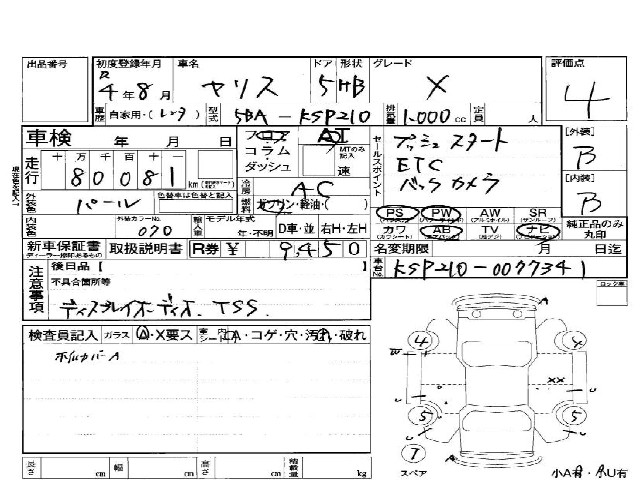 出品番号 初度登録年月 車名 ドア 形状 グレード 評価点
R 4年8月 ヤリス 5 HB X 4
車歴 自家用・(レンタ) 型式 5BA-KSP210 排気量 1.000cc 定員 人
車検 年 月 日 フロア AT セールスポイント プッシュスタート [外装] B
走行 十万千百十一 80081 km コラム ダッシュ MTのみ記入 速 ETC
冷房 AC バックカメラ [内装] B
外装色 パール 色替車は色と記入 燃料 ガソリン・軽油・( ) PS PW AW SR 純正品のみ丸印
内装色 外装カラーNo. 070 輸入車 モデル年式 年・不明 D車・並 右H・左H カワ AB TV ナビ
新車保証書 取扱説明書 R券 ¥ 9,450 名変期限 月 日迄
注意事項 後日品【 車台No. KSP210-0077341
不具合箇所等 ロック車
ディスプレイオーディオ. TSS.
検査員記入 ガラス A・X要ス 室内シート A・コゲ・穴・汚れ・破れ
ホイルカバーA
A
4 4
W U XX U
U U
5 5
7 スペア A
長さ cm 幅 cm 高さ cm 積載量 kg 小A有・小U有